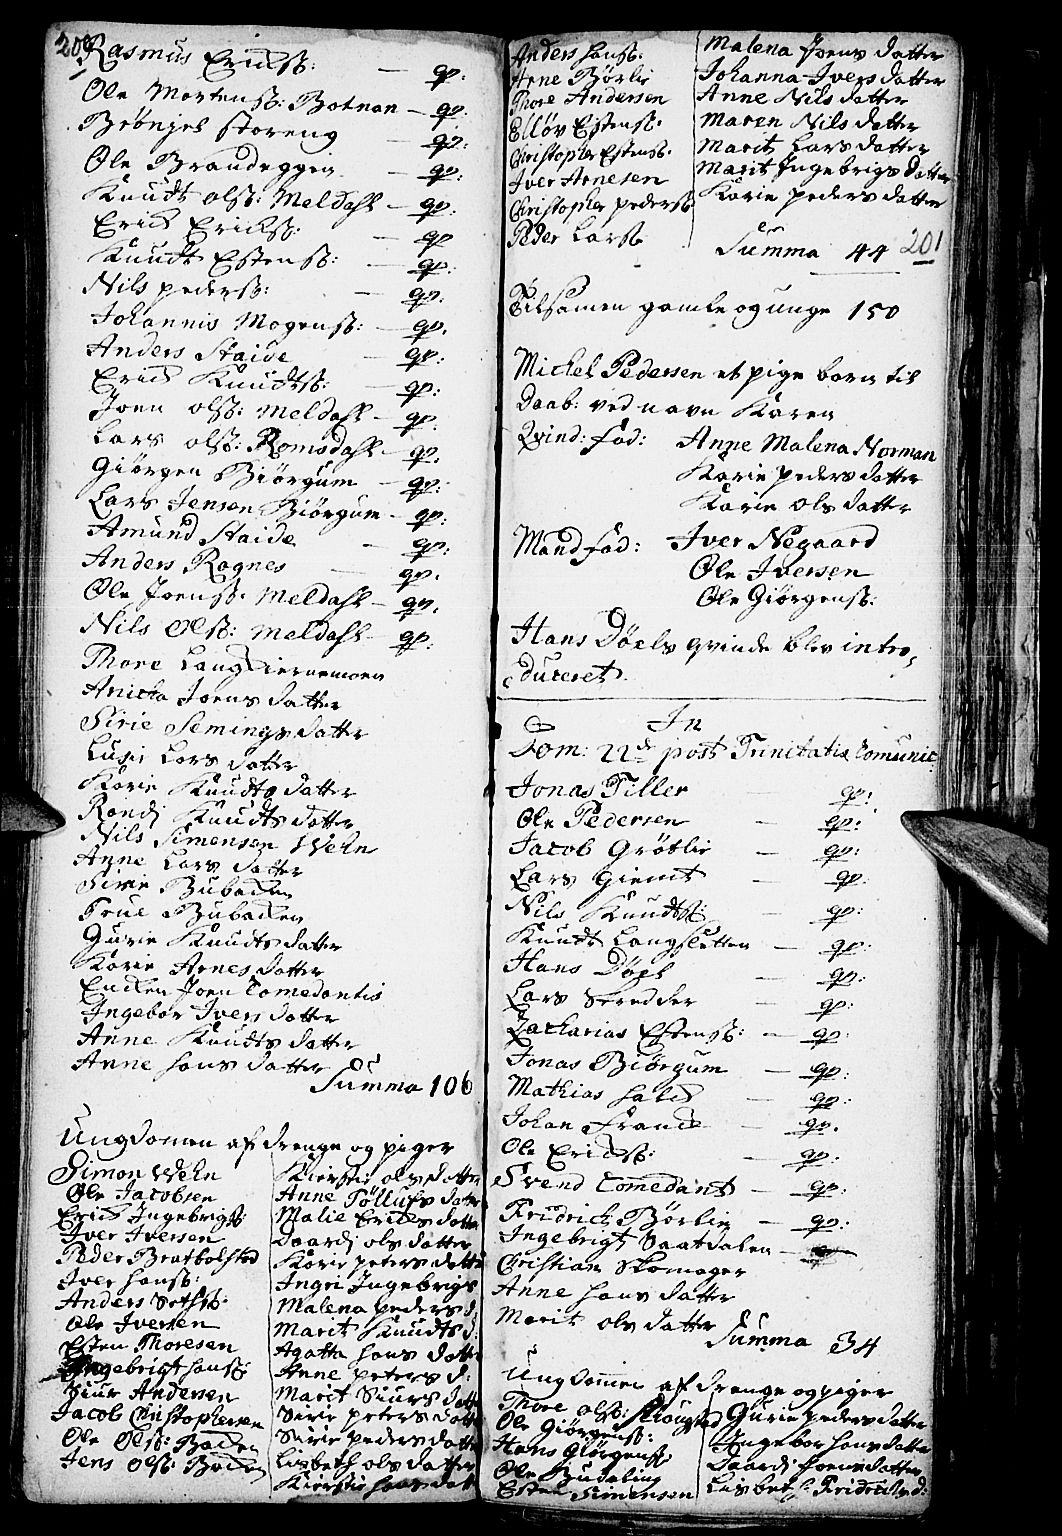 200
Rasmus Ericks: — qv:
Ole Mortens: Botnan — qv:
Brønjel Storeng — qv:
Ole Brandeggen — qv:
Knudt ols: Meldahl — qv:
Erick Ericks: — qv
Knudt Estens: — qv:
Nils peders: — qv:
Johannis Mogens: — qv.
Anders Staide — qv:
Erick Knudts: — qv:
Joen ols: Meldahl — qv:
Lars ols: Romsdahl — qv.
Giørgen Biörgum — qv:
Lars Jensen Biörgum — qv:
Amund Staide — qv:
Anders Rognes — qv.
Ole Joens: Meldahl — qv.
Nils Ols: Meldahl — qv:
Thore Langkiernemoen
Anicka Joens datter
Sirie Semings datter
Lusie Lars datter
Karie Knudts datter
Randi Knudts datter
Nils Simensen Wehn
Anne Lars datter
Sirie Bubacken
True Bubacken
Gurie Knudts datter
Karie Arnes datter
Encken Joen Comedantis
Ingebor Ivers datter
Anne Knudts datter
Anne hans datter
Summa 106
Ungdomen af drenge og piger
Simon Wehn
Ole Jacobsen
Erick Ingebrigts:
Iver Iversen
Peder Bratbolsted
Iver hans:
Anders Seths:
Ole Iversen
Esten Thoresen
Ingebrigt hans:
Siur Andersen
Jacob Christophersen
Ole Ols: Backen
Jens Ols: Backen
Kierstie ols datter
Anne Tøllufs datter
Malie Ericks datter
Daardi ols datter
Karie peters datter
Ingri Ingebrigs
Malena peders d:
Marit Knudts d:
Agatta hans datter
Anne peters d:
Marit Siurs datter
Sirie peters datter
Sirie peders datter
Lisbeth ols datter
Kierstie hans datt
Anders hans:
Arne Börlie
Thore Andersen
Elløv Estens:
Christopher Estens:
Iver Arnesen
Christopher peders:
Peder Lars:
Malena Joens datter
Johanna Ivers datter
Anne Nils datter
Maren Nils datter
Marit Lars datter
Marit Ingebrigs datter
Karie peders datter
Summa 44
201
Tilsamen gamle og unge 150
Michel Pedersen et pige barn til
Daab: ved navn Karen
Qvind: fad: Anne Malena Norman
Karie peders datter
Karie ols datter
Mandfad: Iver Negaard
Ole Iversen
Ole Giørgens:
Hans Döels qvinde blev intro,
duceret.
In
Dom: 22de post Trinitatis Comunic:
Jonas Tiller — qv:
Ole Pedersen — qv:
Jacob Gröblie — qv:
Lars Giemt — qv:
Nils Knudts: — qv:
Knudt Langsletten — qv:
Hans Døel — qv:
Lars Seredder — qv:
Zacharias Estens: — qv:
Jonas Biörgum — qv:
Mathias — qv:
Johan Franck — qv.
Ole Ericks: — qv:
Svend Comedant — qv:
Fridrich Börlie — qv:
Ingebrigt Saatdalen —
Christian Skomager
Anne hans datter
Marit ols datter
Summa 34
Ungdomen af drenge og piger
Thore ols:
Ole Giørgens:
Hans Giørgens:
Ole Budaling
Esten Simensen
Gurie peders datter
Ingebor hans datter
Daardi Joens datter
Lisbet Fridrichs d: